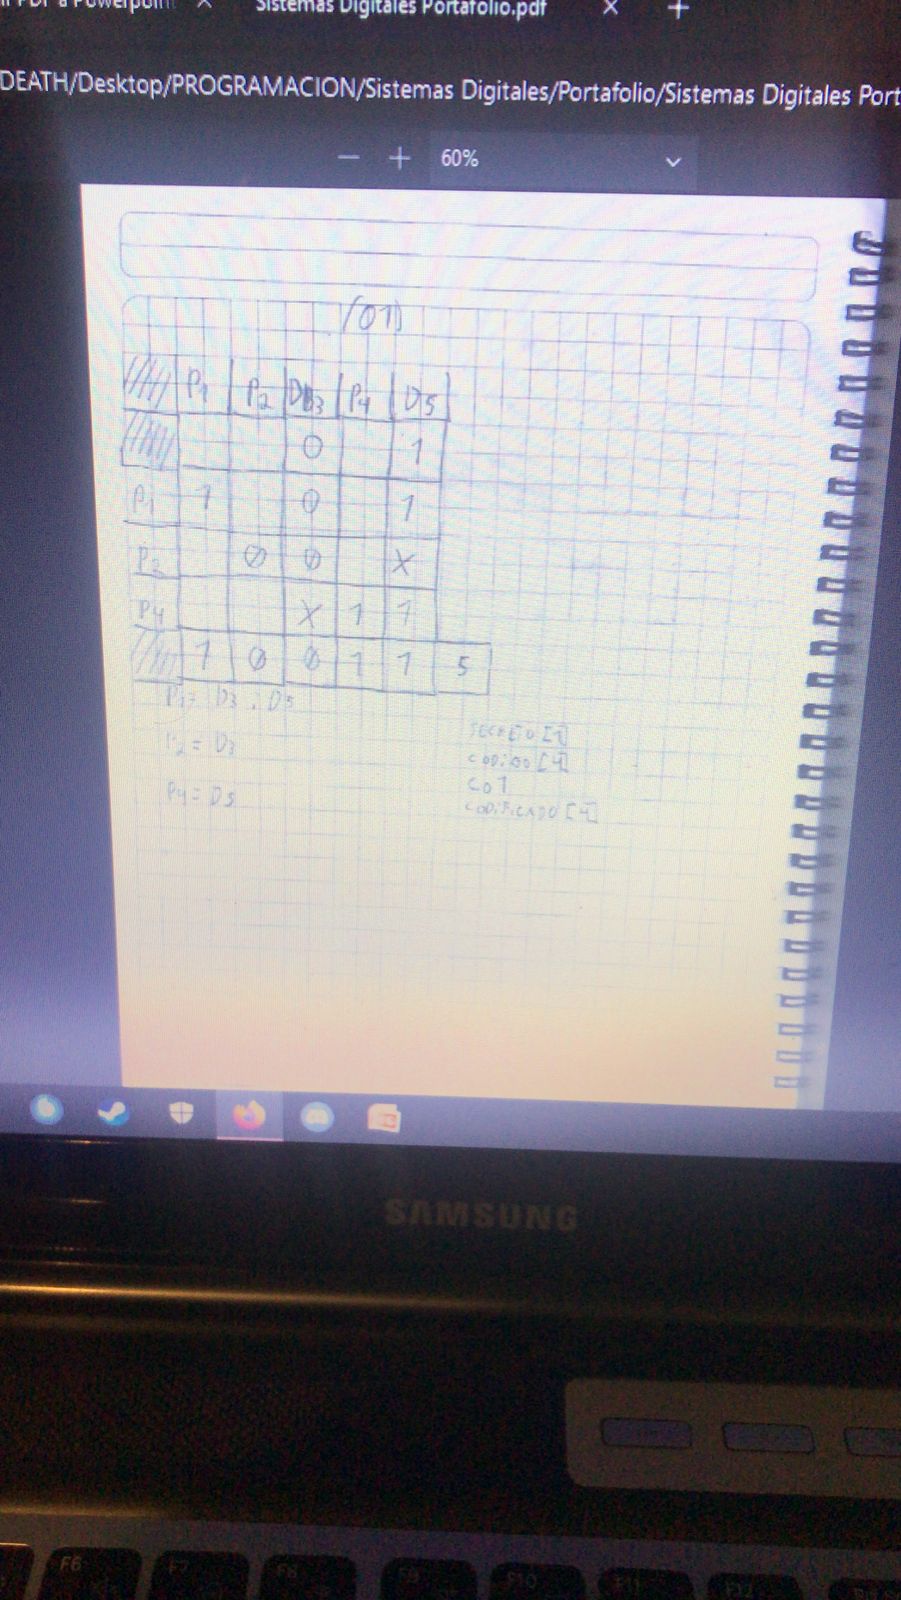 Sistemas Digitales Portafolio.pdf
DEATH/Desktop/PROGRAMACION/Sistemas Digitales/Portafolio/Sistemas Digitales Port
60%
(01)
P1 P2 D3 P4 D5
0 1
P1 1 0 1
P2 0 0 X
P4 X 1 1
1 0 0 1 1 5
P1= D3 . D5
P2 = D3
P4 = D5
SECRETO [1]
CODIGO [4]
CODIFICADO [4]
SAMSUNG
F6
F7
F8
F9
F10
F11
F12